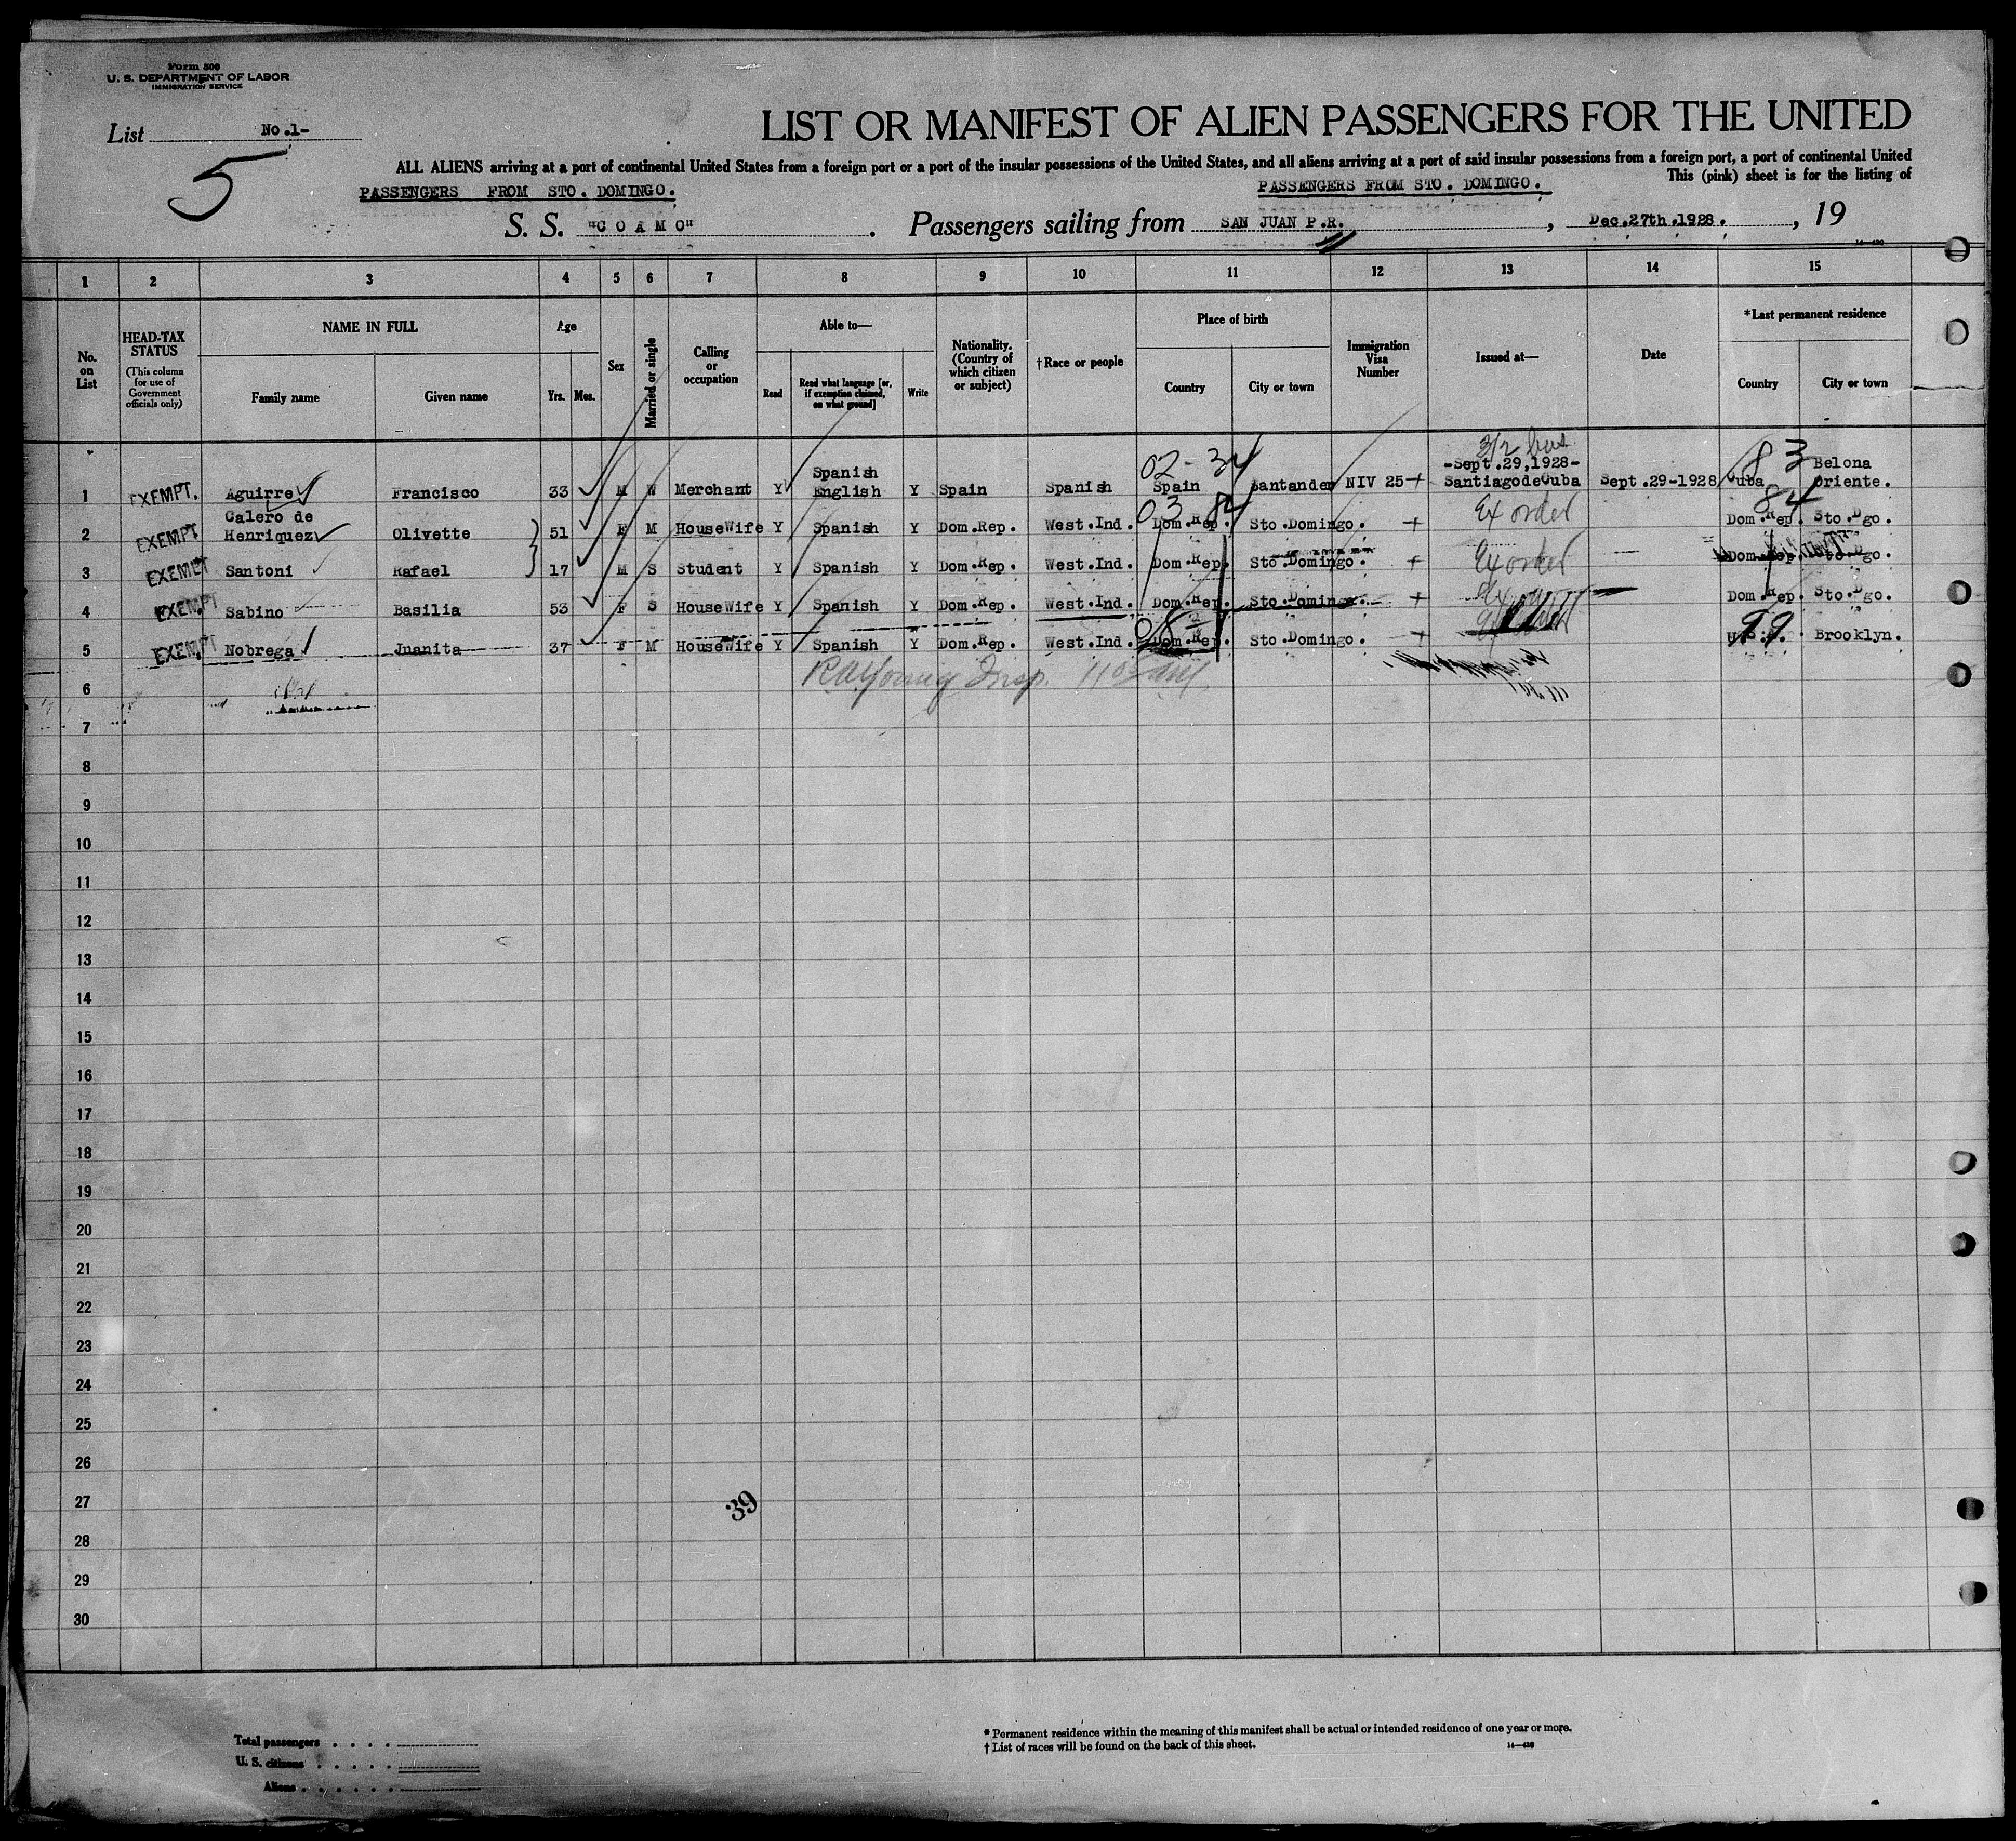 Form 500
U. S. DEPARTMENT OF LABOR
IMMIGRATION SERVICE
List No.1-
5
LIST OR MANIFEST OF ALIEN PASSENGERS FOR THE UNITED
ALL ALIENS arriving at a port of continental United States from a foreign port or a port of the insular possessions of the United States, and all aliens arriving at a port of said insular possessions from a foreign port, a port of continental United
This (pink) sheet is for the listing of
PASSENGERS FROM STO. DOMINGO. PASSENGERS FROM STO. DOMINGO.
S. S. "C O A M O" . Passengers sailing from SAN JUAN P.R. , Dec.27th.1928. , 19
1 2 3 4 5 6 7 8 9 10 11 12 13 14 15
No. on List
HEAD-TAX STATUS
(This column for use of Government officials only)
NAME IN FULL
Family name
Given name
Age
Yrs. Mos.
Sex
Married or single
Calling or occupation
Able to—
Read
Read what language [or, if exemption claimed, on what ground]
Write
Nationality. (Country of which citizen or subject)
†Race or people
Place of birth
Country
City or town
Immigration Visa Number
Issued at—
Date
*Last permanent residence
Country
City or town
02-34 3/2 83
Spanish -Sept.29,1928- Belona
1 EXEMPT. Aguirre Francisco 33 M W Merchant Y English Y Spain Spanish Spain Santander NIV 25 Santiago de Cuba Sept.29-1928 Cuba Oriente.
Calero de 03 84 84
2 EXEMPT Henriquez Olivette 51 F M HouseWife Y Spanish Y Dom.Rep. West.Ind. Dom.Rep. Sto.Domingo. + Ex order Dom.Rep. Sto.Dgo.
3 EXEMPT Santoni Rafael 17 M S Student Y Spanish Y Dom.Rep. West.Ind. Dom.Rep. Sto.Domingo. + Ex order Dom.Rep. Sto.Dgo.
4 EXEMPT Sabino Basilia 53 F S HouseWife Y Spanish Y Dom.Rep. West.Ind. Dom.Rep. Sto.Domingo. + Dom.Rep. Sto.Dgo.
5 EXEMPT Nobrega Juanita 37 F M HouseWife Y Spanish Y Dom.Rep. West.Ind. Dom.Rep. Sto.Domingo. + 99 Brooklyn.
6
7
8
9
10
11
12
13
14
15
16
17
18
19
20
21
22
23
24
25
26
27
39
28
29
30
Total passengers
U. S. citizens
Aliens
* Permanent residence within the meaning of this manifest shall be actual or intended residence of one year or more.
† List of races will be found on the back of this sheet. 14—430